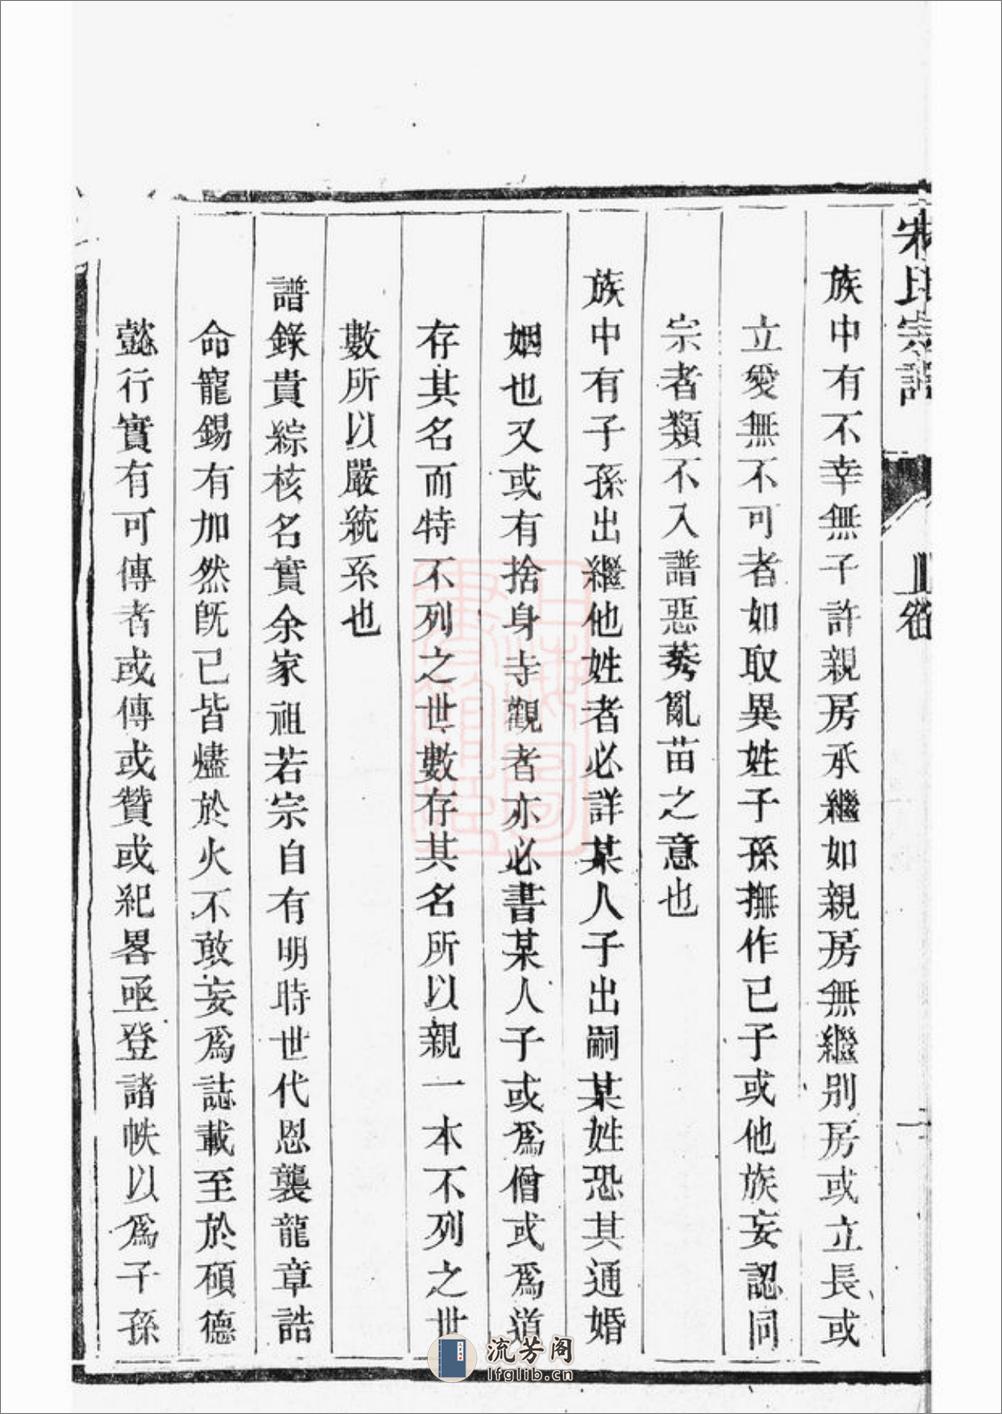 宋氏宗譜
族中有不幸無子許親房承繼如親房無繼別房或立長或
立愛無不可者如取異姓子孫撫作已子或他族妄認同
宗者類不入譜惡莠亂苗之意也
族中有子孫出繼他姓者必詳某人子出嗣某姓恐其通婚
姻也又或有捨身寺觀者亦必書某人子或爲僧或爲道
存其名而特不列之世數存其名所以親一本不列之世
數所以嚴統系也
譜錄貴綜核名實余家祖若宗自有明時世代恩襲龍章誥
命寵錫有加然旣已皆燼於火不敢妄爲誌載至於碩德
懿行實有可傳者或傳或贊或紀畧亟登諸帙以爲子孫
流芳阁
lfglib.cn